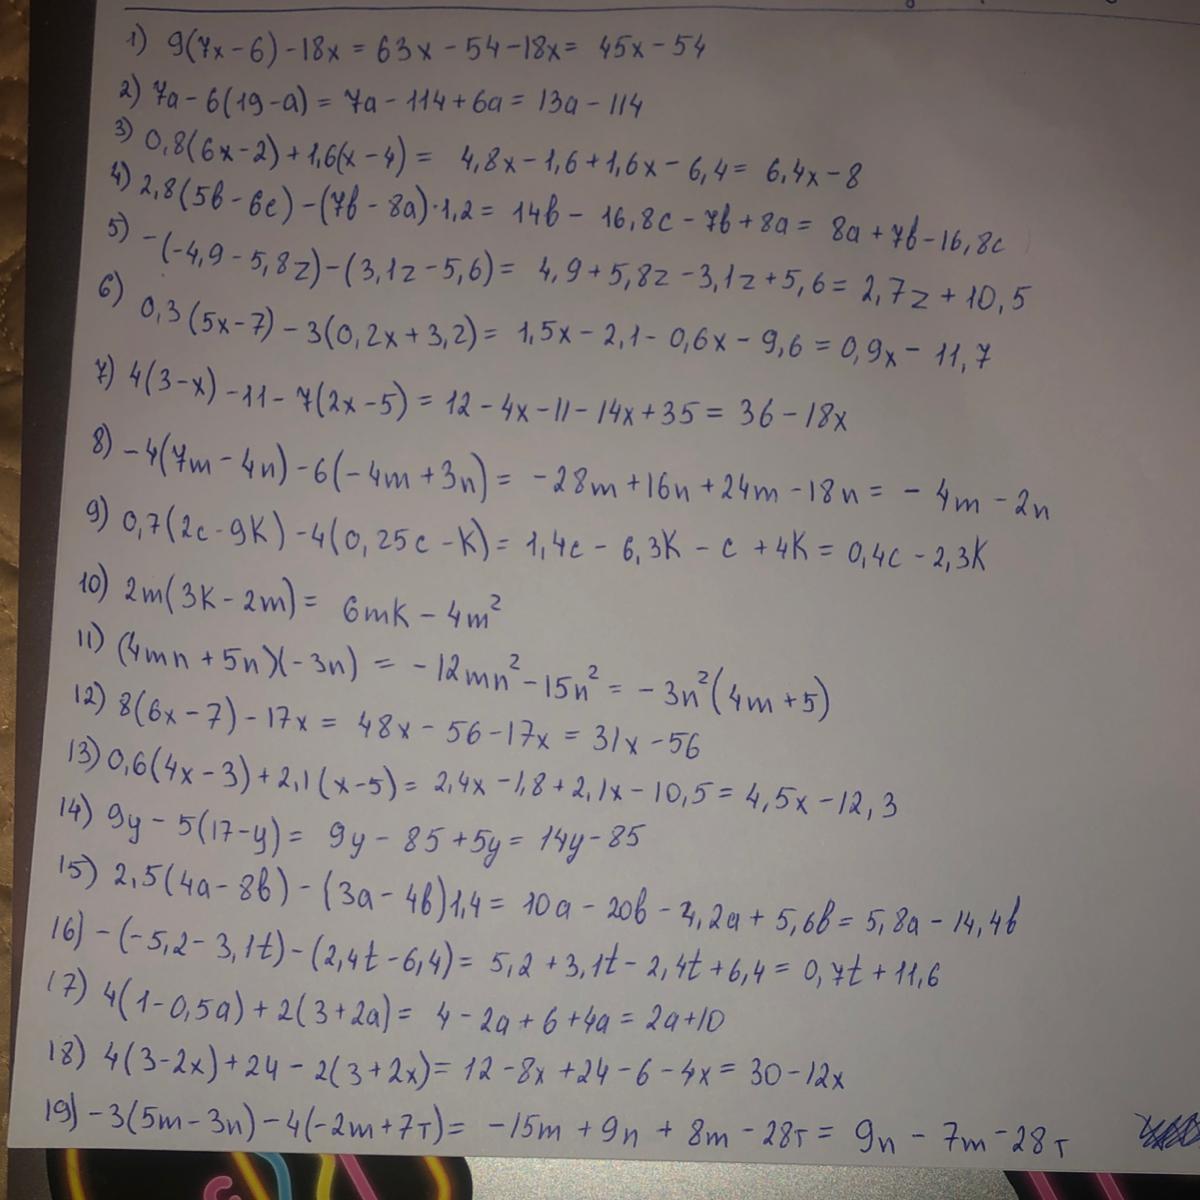 1) 9(7x-6)-18x = 63x - 54-18x= 45x-54
2) 7a-6(19-a) = 7a-114+6a= 13a-114
3) 0,8(6x-2)+1,6(x-4)= 4,8x-1,6+1,6x-6,4= 6,4x-8
4) 2,8(5b-6c)-(7b-8a)·1,2= 14b- 16,8c-7b+8a= 8a+7b-16,8c
5) -(-4,9-5,8z)-(3,1z-5,6)= 4,9+5,8z-3,1z+5,6=2,7z+10,5
6) 0,3(5x-7)-3(0,2x+3,2)= 1,5x-2,1-0,6x-9,6=0,9x-11,7
7) 4(3-x)-11-7(2x-5)=12-4x-11-14x+35=36-18x
8) -4(7m-4n)-6(-4m+3n)= -28m+16n+24m-18n= -4m-2n
9) 0,7(2c-9k)-4(0,25c-k)=1,4c-6,3k-c+4k=0,4c-2,3k
10) 2m(3k-2m)= 6mk-4m²
11) (4mn+5n)(-3n) = -12mn²-15n²= -3n²(4m+5)
12) 8(6x-7)-17x = 48x-56-17x=31x-56
13) 0,6(4x-3)+2,1(x-5)= 2,4x-1,8+2,1x-10,5=4,5x-12,3
14) 9y-5(17-y)= 9y-85+5y= 14y-85
15) 2,5(4a-8b)-(3a-4b)1,4= 10a-20b-4,2a+5,6b=5,8a-14,4b
16) -(-5,2-3,1t)-(2,4t-6,4)= 5,2+3,1t-2,4t+6,4=0,7t+11,6
17) 4(1-0,5a)+2(3+2a)= 4-2a+6+4a=2a+10
18) 4(3-2x)+24-2(3+2x)=12-8x+24-6-4x=30-12x
19) -3(5m-3n)-4(-2m+7т)= -15m+9n+8m-28т= 9n-7m-28т